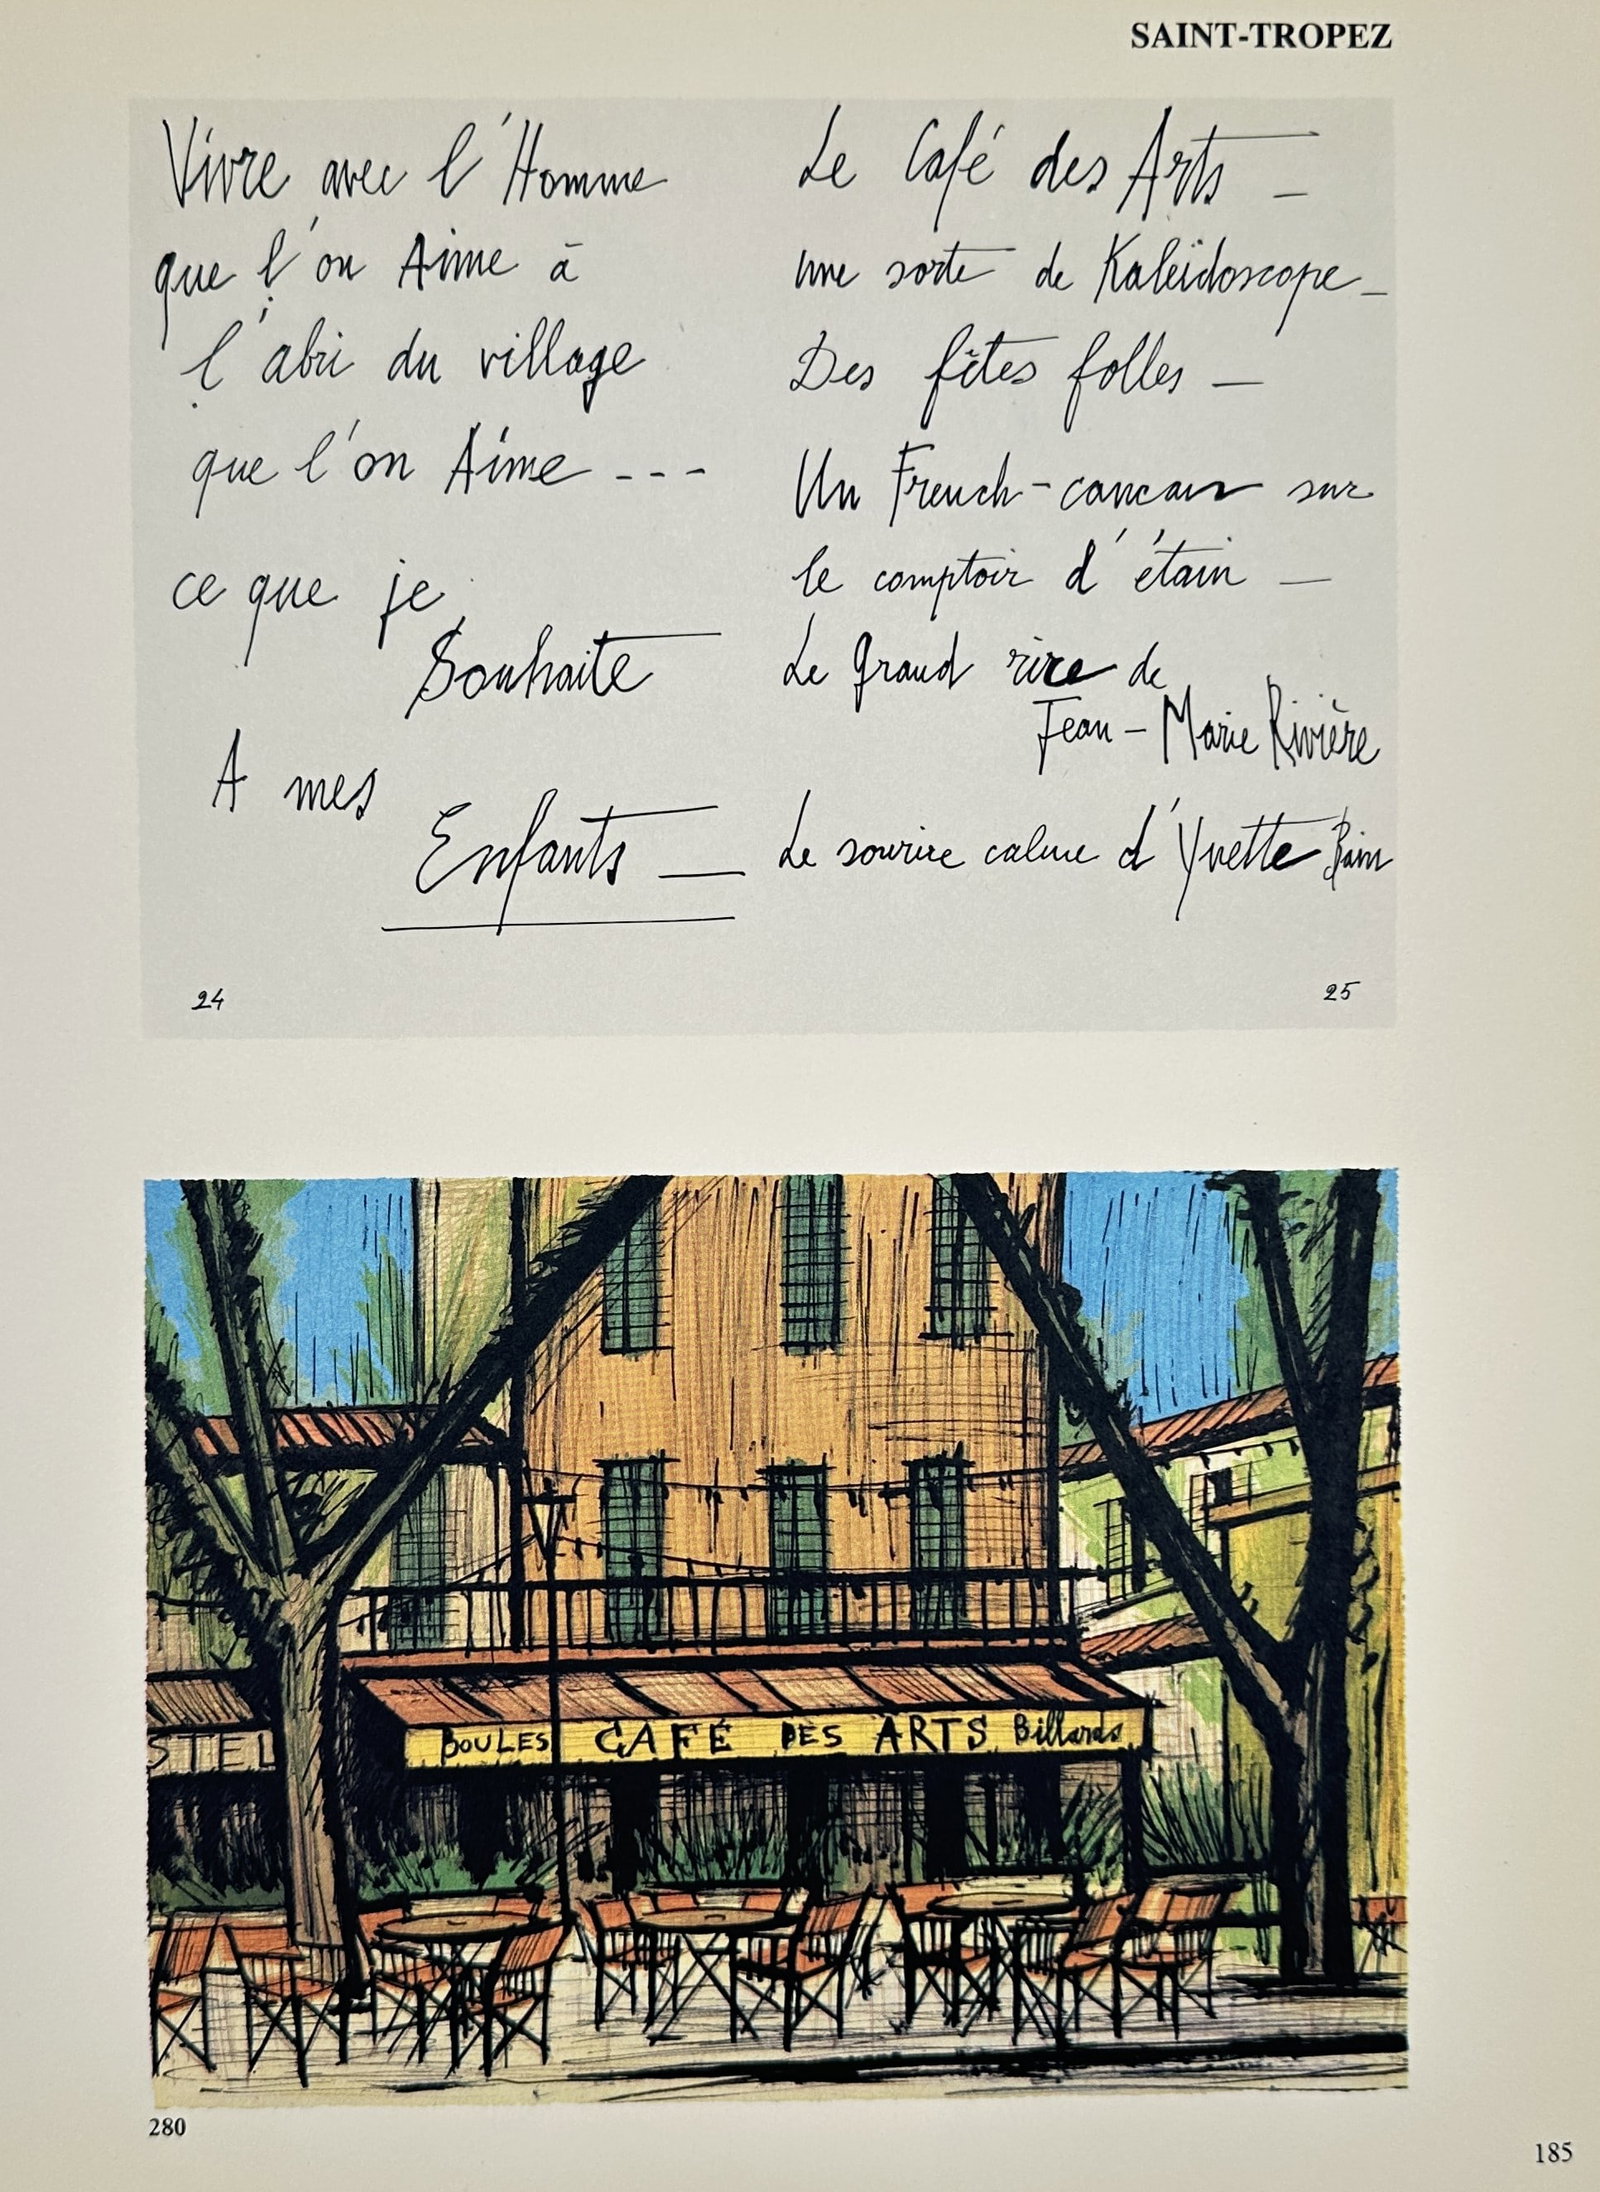 SAINT-TROPEZ
Vivre avec l'Homme
que l'on Aime à
l'abri du village
que l'on Aime ---
ce que je
Souhaite
A mes
Enfants —
24
Le Café des Arts —
une sorte de Kaléïdoscope —
Des fêtes folles —
Un French-cancan sur
le comptoir d'étain —
Le grand rire de
Jean-Marie Rivière
Le sourire calme d'Yvette
25
STEL
BOULES CAFÉ DES ARTS Billards
280
185